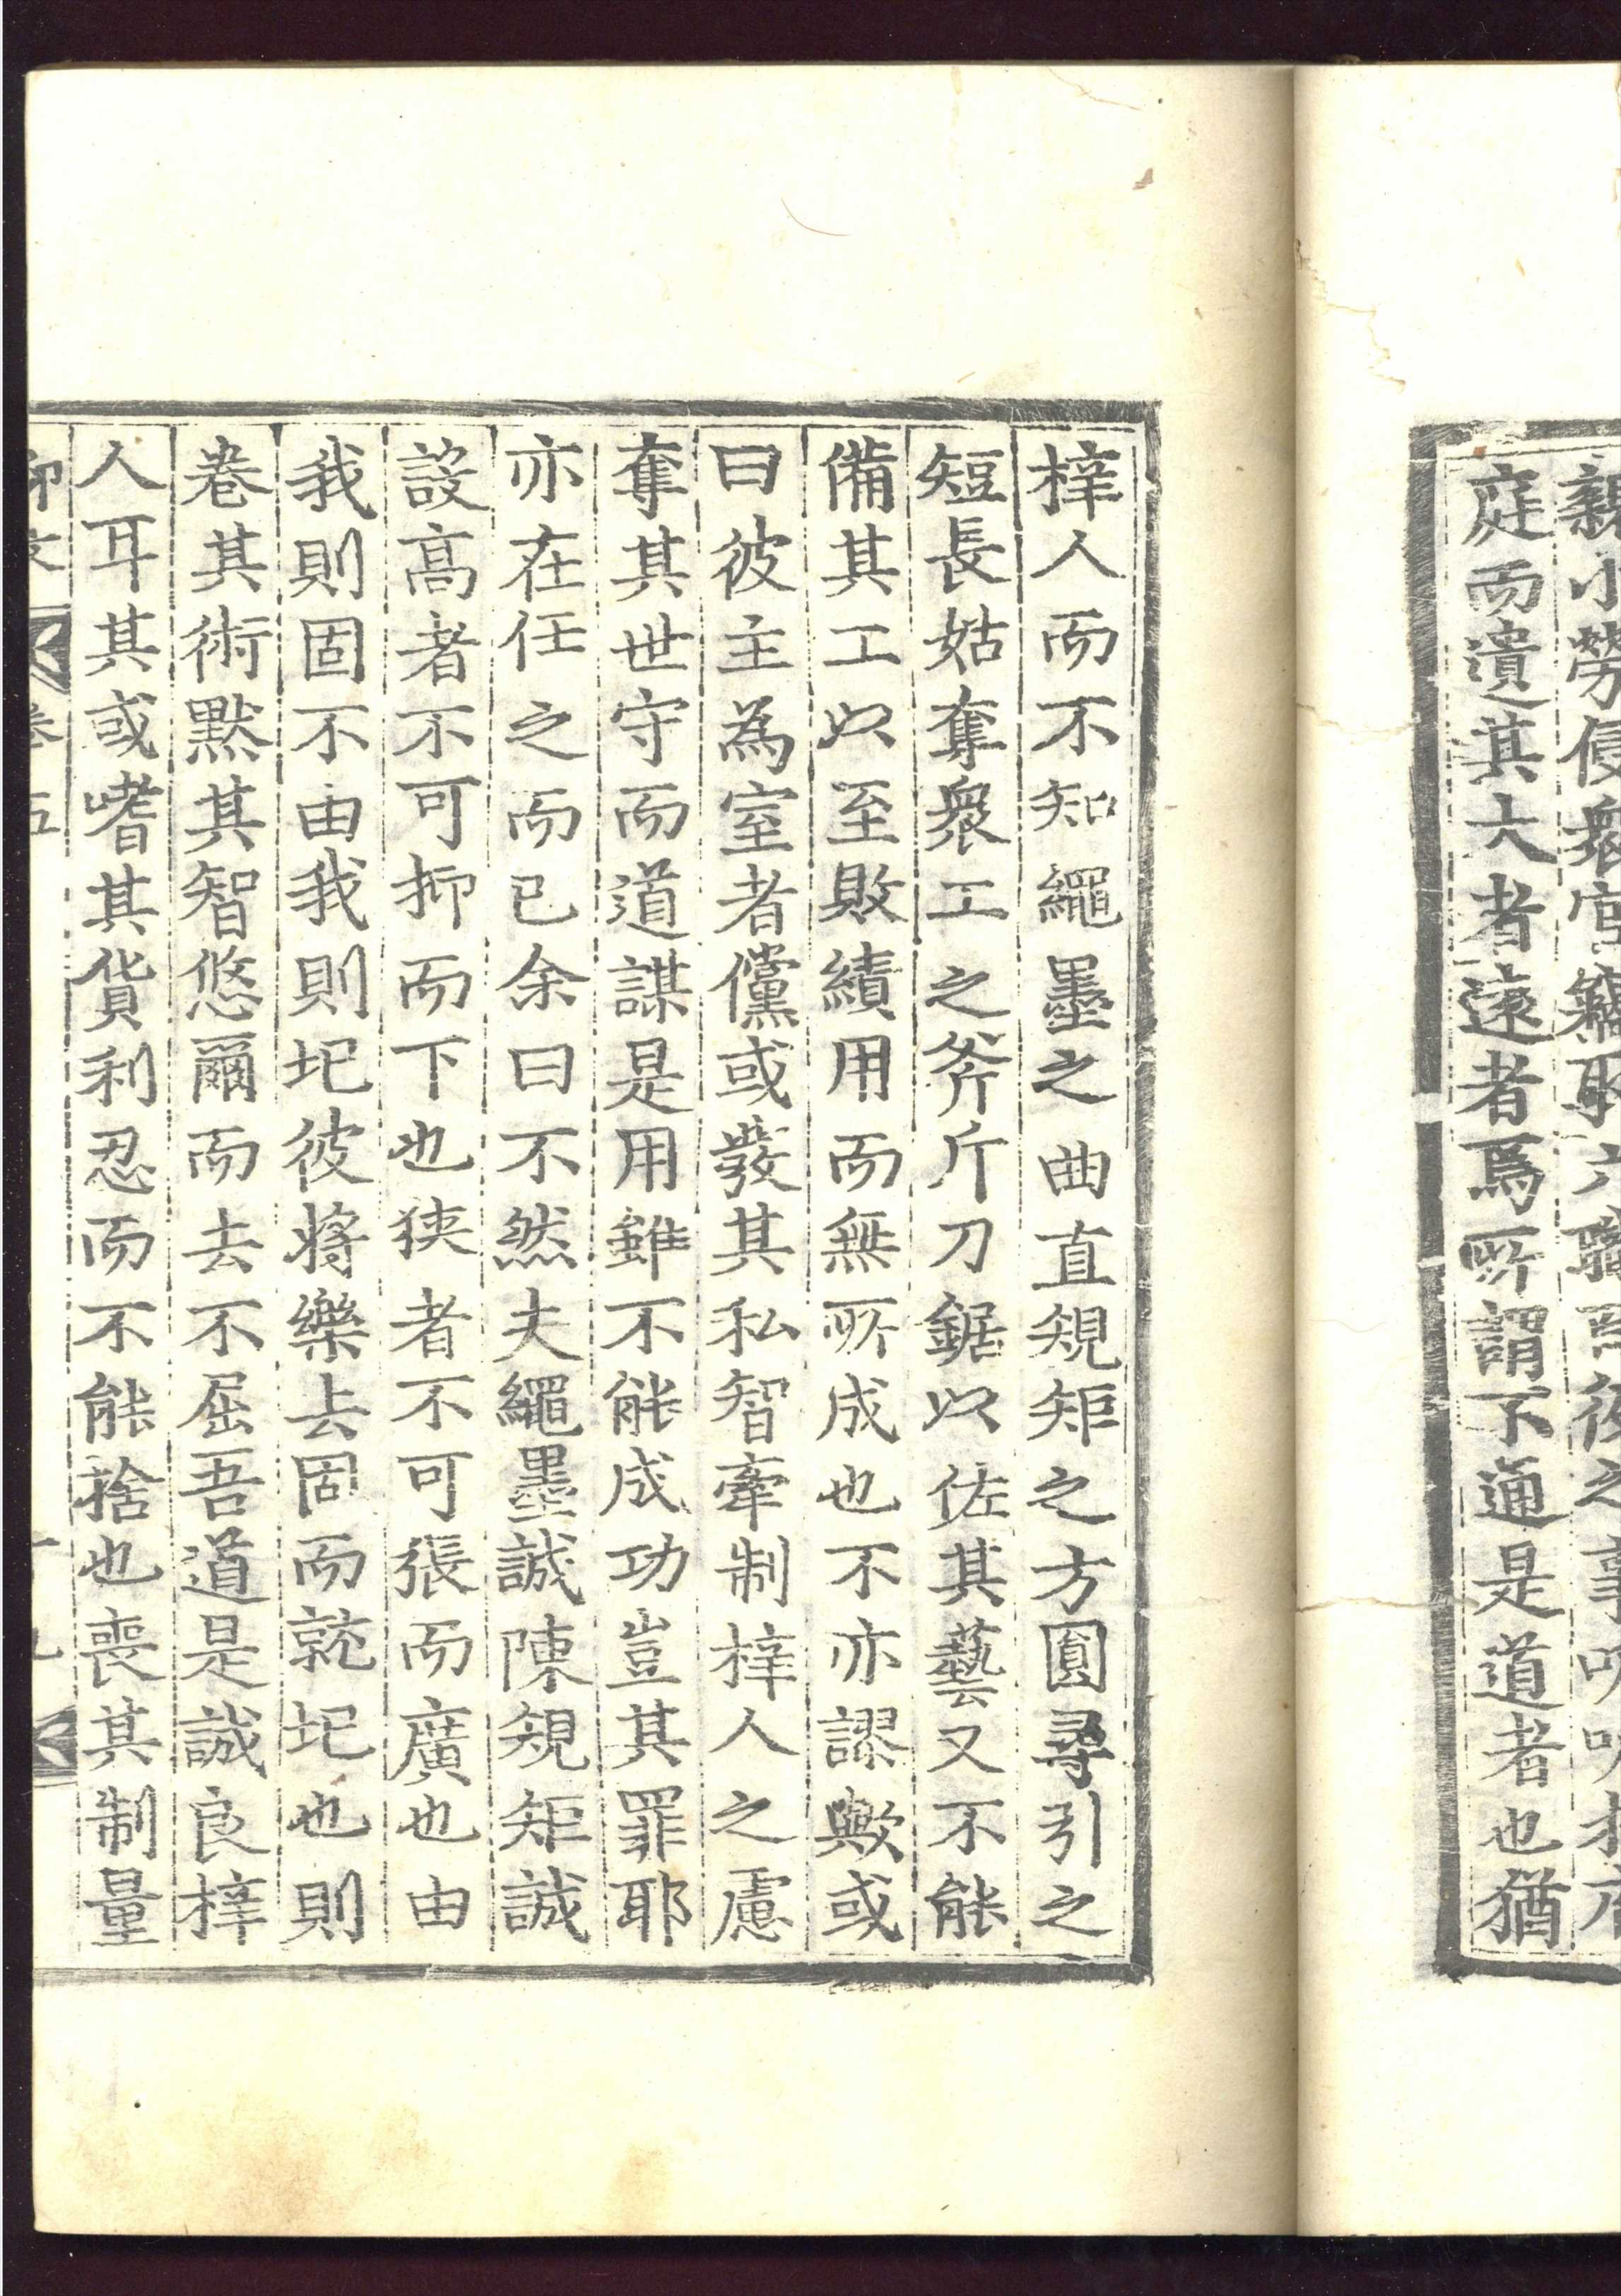 親小勞侵衆官竊取六職百役之事听听
庭而遺其大者遠者焉所謂不通是道者也猶
梓人而不知繩墨之曲直規矩之方圓尋引之
短長姑奪衆工之斧斤刀鋸以佐其藝又不能
備其工以至敗績用而無所成也不亦謬歟或
曰彼主為室者儻或發其私智牽制梓人之慮
奪其世守而道謀是用雖不能成功豈其罪耶
亦在任之而已余曰不然夫繩墨誠陳規矩誠
設高者不可抑而下也狹者不可張而廣也由
我則固不由我則圮彼將樂去固而就圮也則
卷其術黙其智悠爾而去不屈吾道是誠良梓
人耳其或嗜其貨利忍而不能捨也喪其制量
柳文 卷五